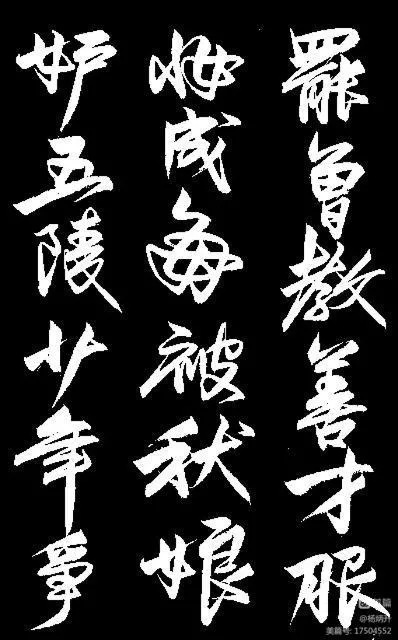 罷曾教善才服
妝成每被秋娘
妒五陵少年爭
美篇
@杨炳升
美篇号: 17504552